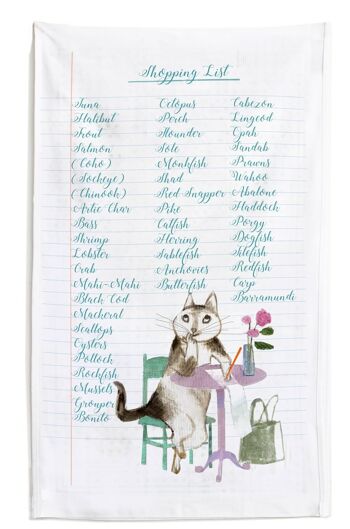 Shopping List
Tuna
Halibut
Trout
Salmon
(Coho)
(Sockeye)
(Chinook)
Artic Char
Bass
Shrimp
Lobster
Crab
Mahi-Mahi
Black Cod
Mackeral
Scallops
Oysters
Pollock
Rockfish
Mussels
Grouper
Bonito
Octopus
Perch
Flounder
Sole
Monkfish
Shad
Red Snapper
Pike
Catfish
Herring
Sablefish
Anchovies
Butterfish
Cabezon
Lingcod
Opah
Sandab
Prawns
Wahoo
Abalone
Haddock
Porgy
Dogfish
Tilefish
Redfish
Carp
Barramundi